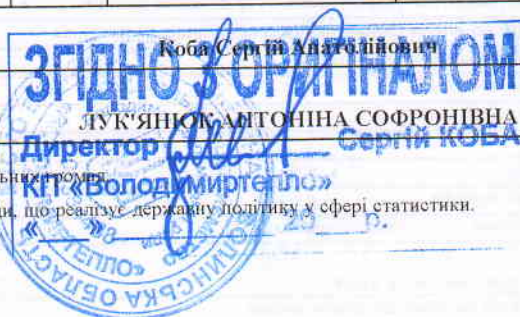 Коба Сергій Анатолійович
ЗГІДНО З ОРИГІНАЛОМ
ЛУК'ЯНЮК АНТОНІНА СОФРОНІВНА
Директор Сергій КОБА
льних громад
КП «Володимиртепло»
ди, що реалізує державну політику у сфері статистики.
« » р.
ТЕПЛО» ВОЛИНСЬКА ОБЛАСТЬ